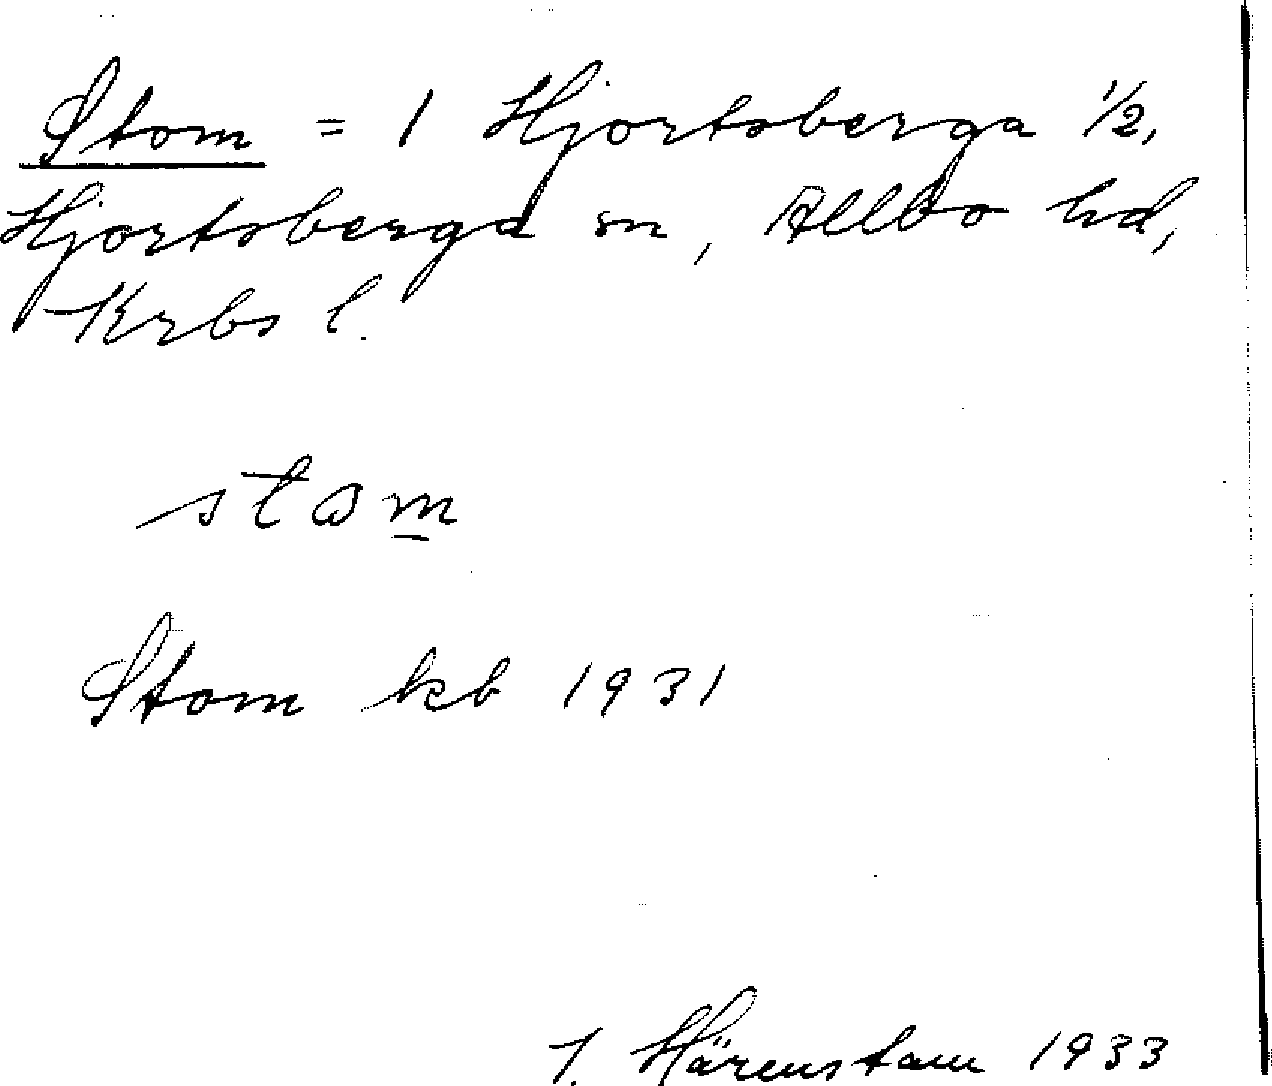 Stom = 1 Hjortsberga 1/2,
Hjortsberga sn, Allbo hd,
Krbs l.
stɷm̲
Stom kb 1931
J. Härenstam 1933